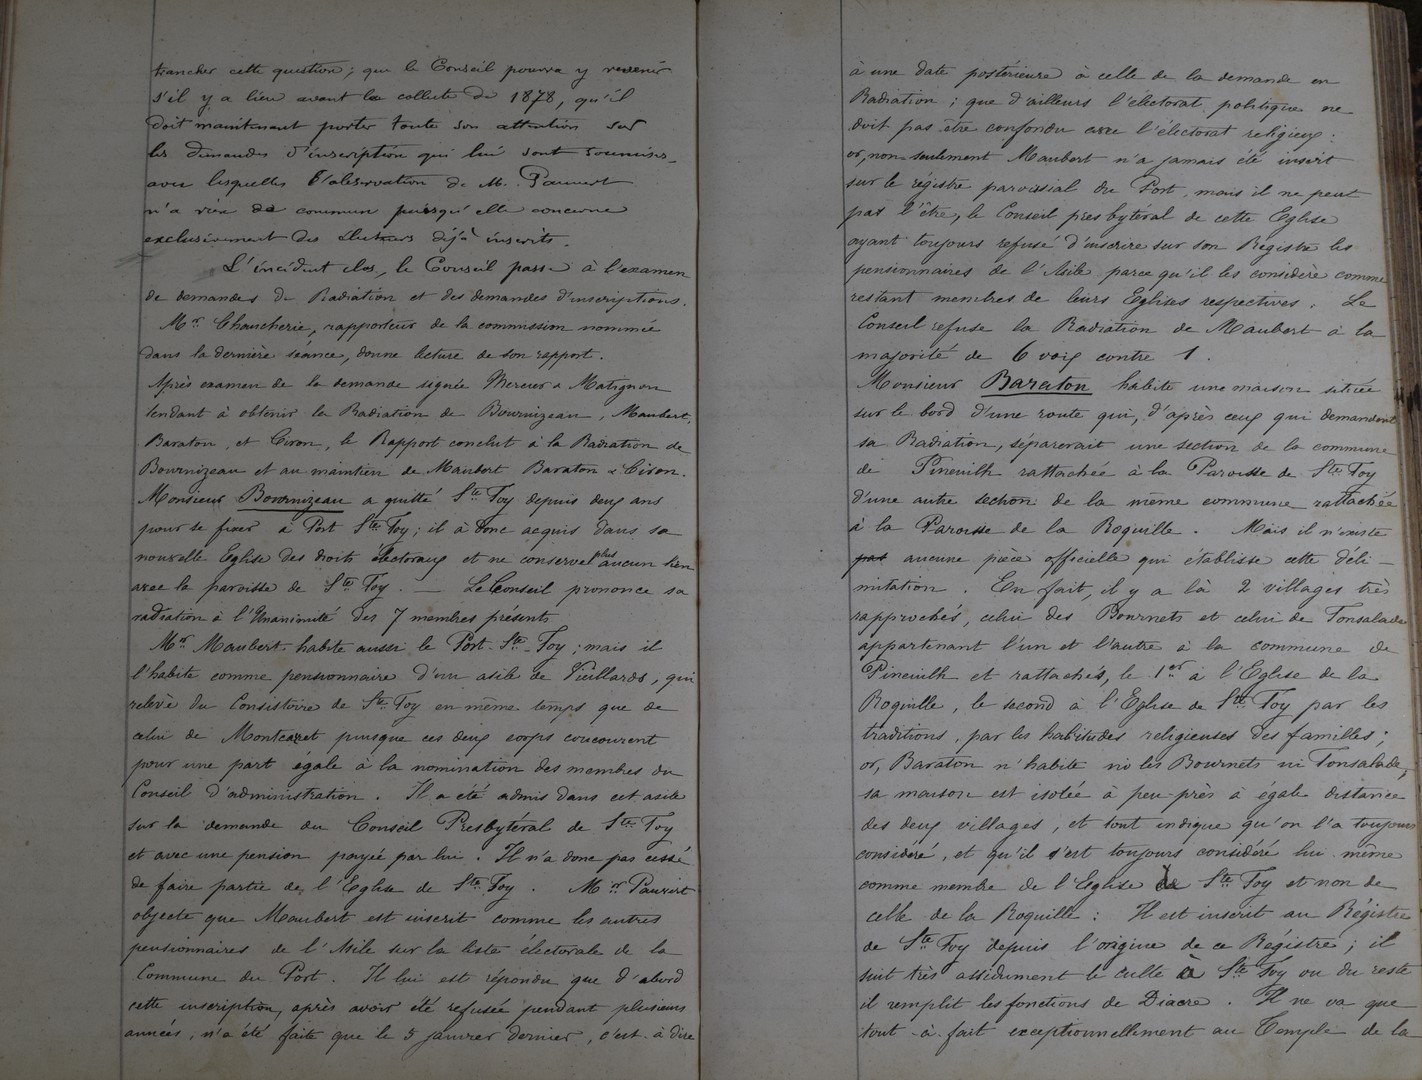 trancher cette question ; que le Conseil pourra y revenir
s'il y a lieu avant la collecte de 1878, qu'il
doit maintenant porter toute son attention sur
les demandes d'inscription qui lui sont soumises,
avec lesquelles l'observation de M. Pauvert
n'a rien de commun puisqu'elle concerne
exclusivement des électeurs déjà inscrits.
L'incident clos, le Conseil passe à l'examen
de demandes de Radiation et des demandes d'inscriptions.
Mr Chaucherie, rapporteur de la commission nommée
dans la dernière séance, donne lecture de son rapport.
Après examen de la demande signée Mercier & Matignon
tendant à obtenir la Radiation de Bournizeau, Maubert,
Baraton, et Ciron, le Rapport conclut à la Radiation de
Bournizeau et au maintien de Maubert Baraton & Ciron.
Monsieur Bournizeau a quitté Ste Foy depuis deux ans
pour se fixer à Port Ste Foy ; il a donc acquis dans sa
nouvelle Eglise des droits électoraux et ne conserve plus aucun lien
avec la paroisse de Ste Foy. — Le Conseil prononce sa
radiation à l'Unanimité des 7 membres présents
Mr Maubert habite aussi le Port-Ste-Foy ; mais il
l'habite comme pensionnaire d'un asile de Vieillards, qui
relève du Consistoire de Ste Foy en même temps que de
celui de Montcaret puisque ces deux corps concourent
pour une part égale à la nomination des membres du
Conseil d'administration. Il a été admis dans cet asile
sur la demande du Conseil Presbytéral de Ste Foy
et avec une pension payée par lui. Il n'a donc pas cessé
de faire partie de l'Eglise de Ste Foy. Mr Pauvert
objecte que Maubert est inscrit comme les autres
pensionnaires de l'Asile sur la liste électorale de la
Commune du Port. Il lui est répondu que d'abord
cette inscription, après avoir été refusée pendant plusieurs
années, n'a été faite que le 5 janvier dernier, c'est-à-dire
à une date postérieure à celle de la demande en
Radiation ; que d'ailleurs l'électorat politique ne
doit pas être confondu avec l'électorat religieux :
or, non-seulement Maubert n'a jamais été inscrit
sur le régistre paroissial du Port, mais il ne peut
pas l'être, le Conseil presbytéral de cette Eglise
ayant toujours refusé d'inscrire sur son Registre les
pensionnaires de l'Asile parce qu'il les considère comme
restant membres de leurs Eglises respectives. Le
Conseil refuse la Radiation de Maubert à la
majorité de 6 voix contre 1.
Monsieur Baraton habite une maison située
sur le bord d'une route qui, d'après ceux qui demandent
sa Radiation, séparerait une section de la commune
de Pineuilh rattachée à la Paroisse de Ste Foy
d'une autre section de la même commune rattachée
à la Paroisse de la Roquille. Mais il n'existe
pas aucune pièce officielle qui établisse cette déli-
mitation. En fait, il y a là 2 villages très
rapprochés, celui des Bournets et celui de Tonsalade
appartenant l'un et l'autre à la commune de
Pineuilh et rattachés, le 1er à l'Eglise de la
Roquille, le second à l'Eglise de Ste Foy par les
traditions, par les habitudes religieuses des familles ;
or, Baraton n'habite ni les Bournets ni Tonsalade,
sa maison est isolée à peu-près à égale distance
des deux villages, et tout indique qu'on l'a toujours
considéré, et qu'il s'est toujours considéré lui même
comme membre de l'Eglise de Ste Foy et non de
celle de la Roquille : Il est inscrit au Régistre
de Ste Foy depuis l'origine de ce Régistre ; il
suit très assidument le culte à Ste Foy ou du reste
il remplit les fonctions de Diacre. Il ne va que
tout-à-fait exceptionnellement au Temple de la